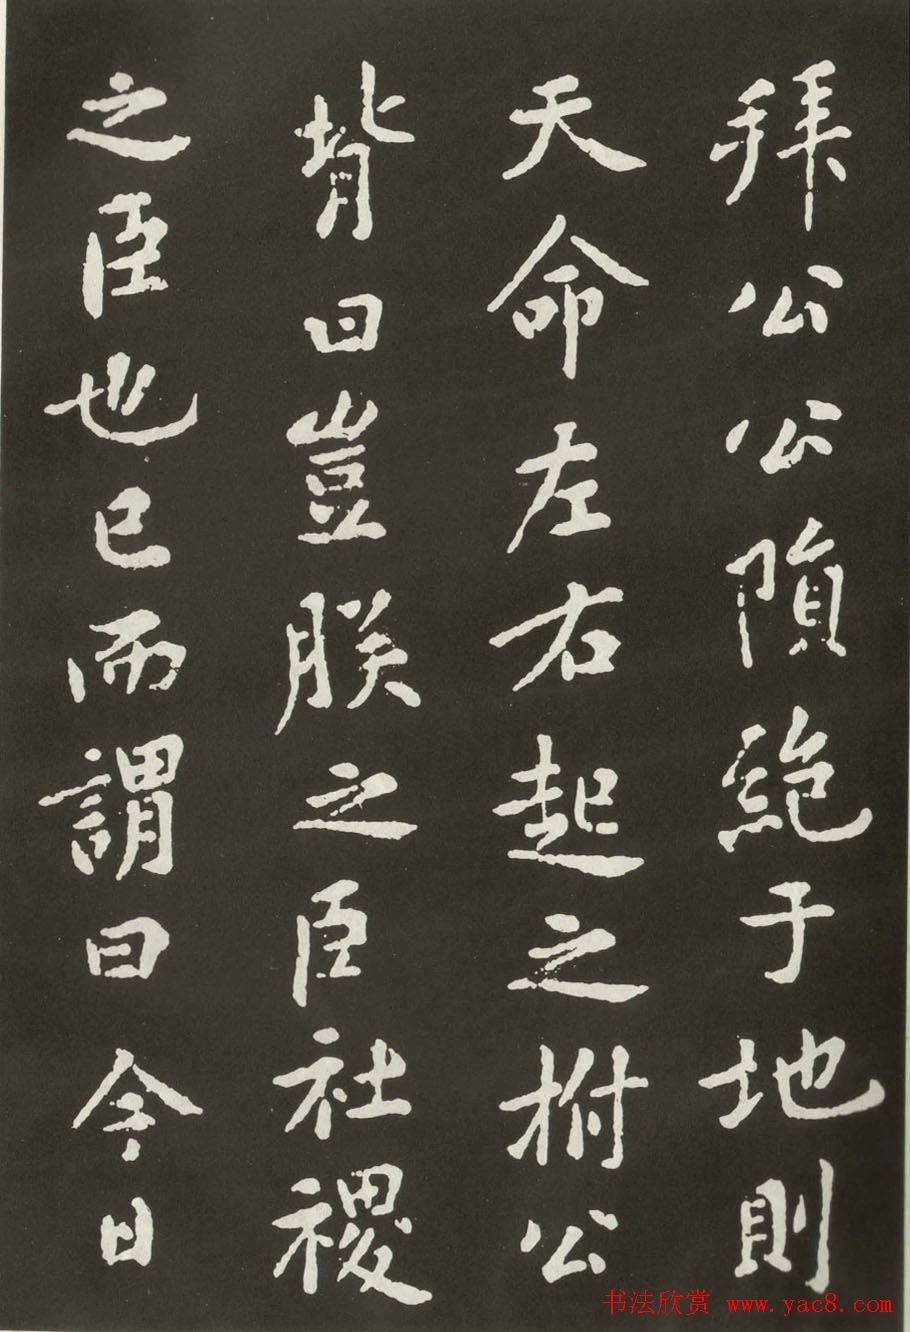 拜公公隕絶于地則
天命左右起之拊公
背曰豈朕之臣社稷
之臣也已而謂曰今日
书法欣赏 www.yac8.com